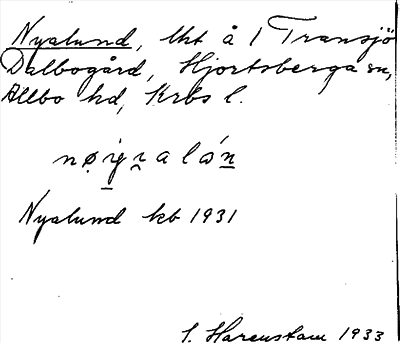 Nyalund, lht å 1 Transjö
Dalbogård, Hjortsberga sn,
Allbo hd, Krbs l.
Nyalund kb 1931
S. Harenstam 1933